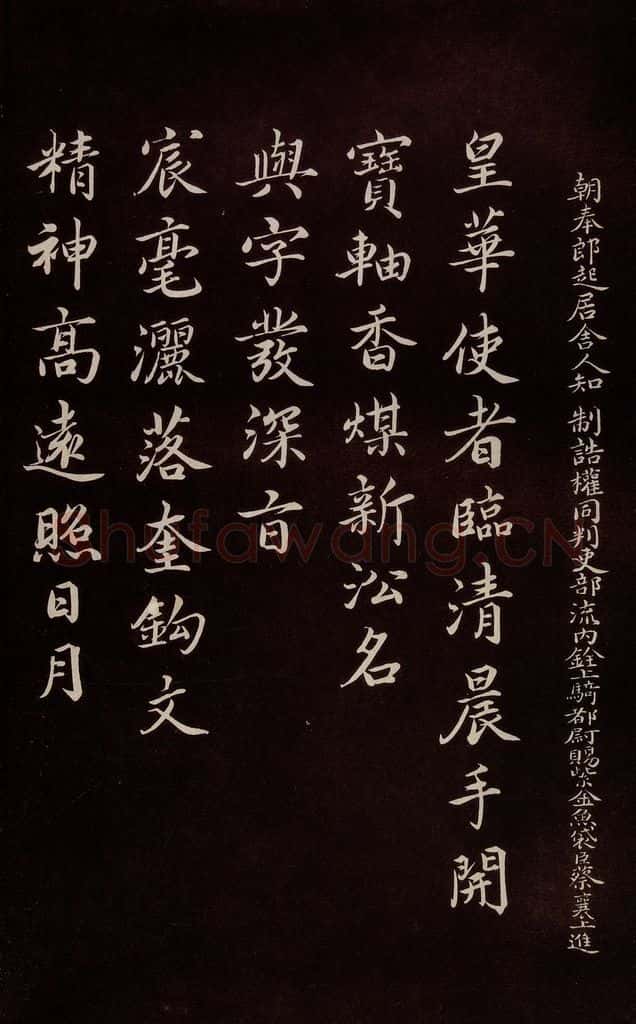 朝奉郎起居舍人知 制誥權同判吏部流內銓上騎都尉賜紫金魚袋臣蔡襄上進
皇華使者臨清晨手開
寶軸香煤新沄名
與字發深㫖
宸毫灑落奎鈎文
精神高遠照日月
shufawang.CN